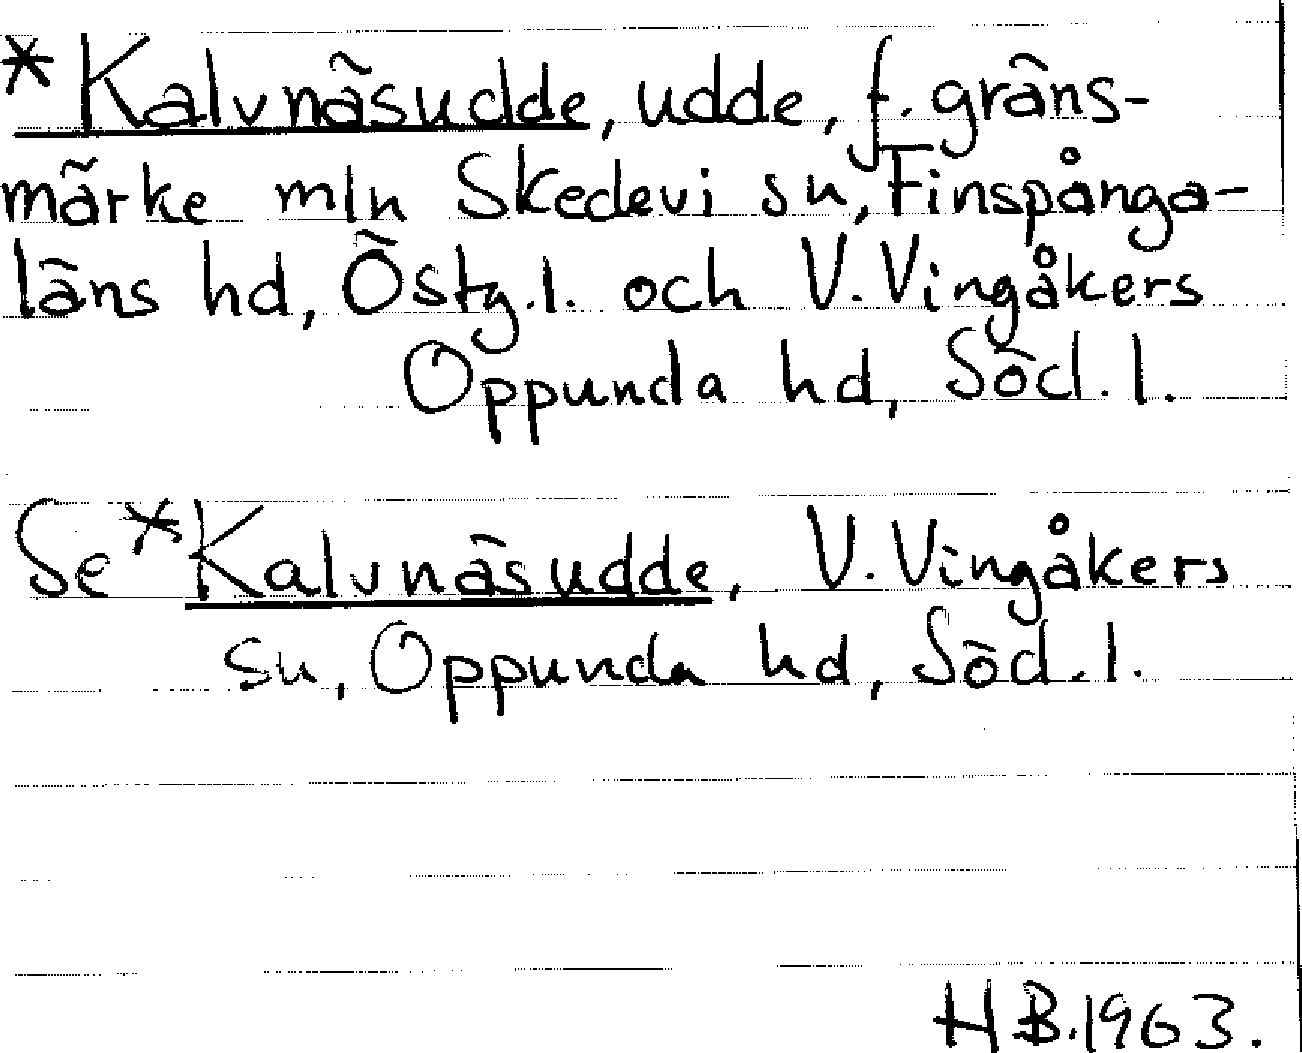 *Kalvnäsudde, udde, f. gräns-
märke mln Skedevi sn, Finspånga-
läns hd, Östg.l. och V. Vingåkers
Oppunda hd, Söd. l.
Se *Kalvnäsudde, V. Vingåkers
sn, Oppunda hd, Söd. l.
HB. 1963.